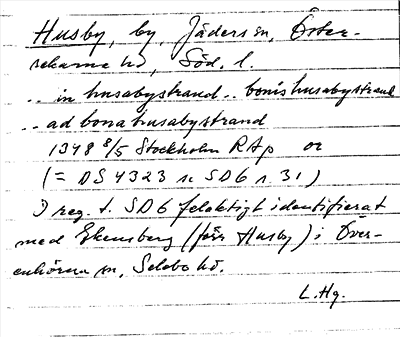 Husby, by, Jäders sn, Öster-
rekarne hd, Söd. l.
.. in husabystrand .. bonis husabystrand
.. ad bona husabystrand
1348 8/5 Stockholm RAp or
(= DS 4323 s. SD6 s. 31)
I reg. t. SD6 felaktigt identifierat
med Ekensberg (förr Husby) i Över-
enhörna sn, Selebo hd.
L. Hg.